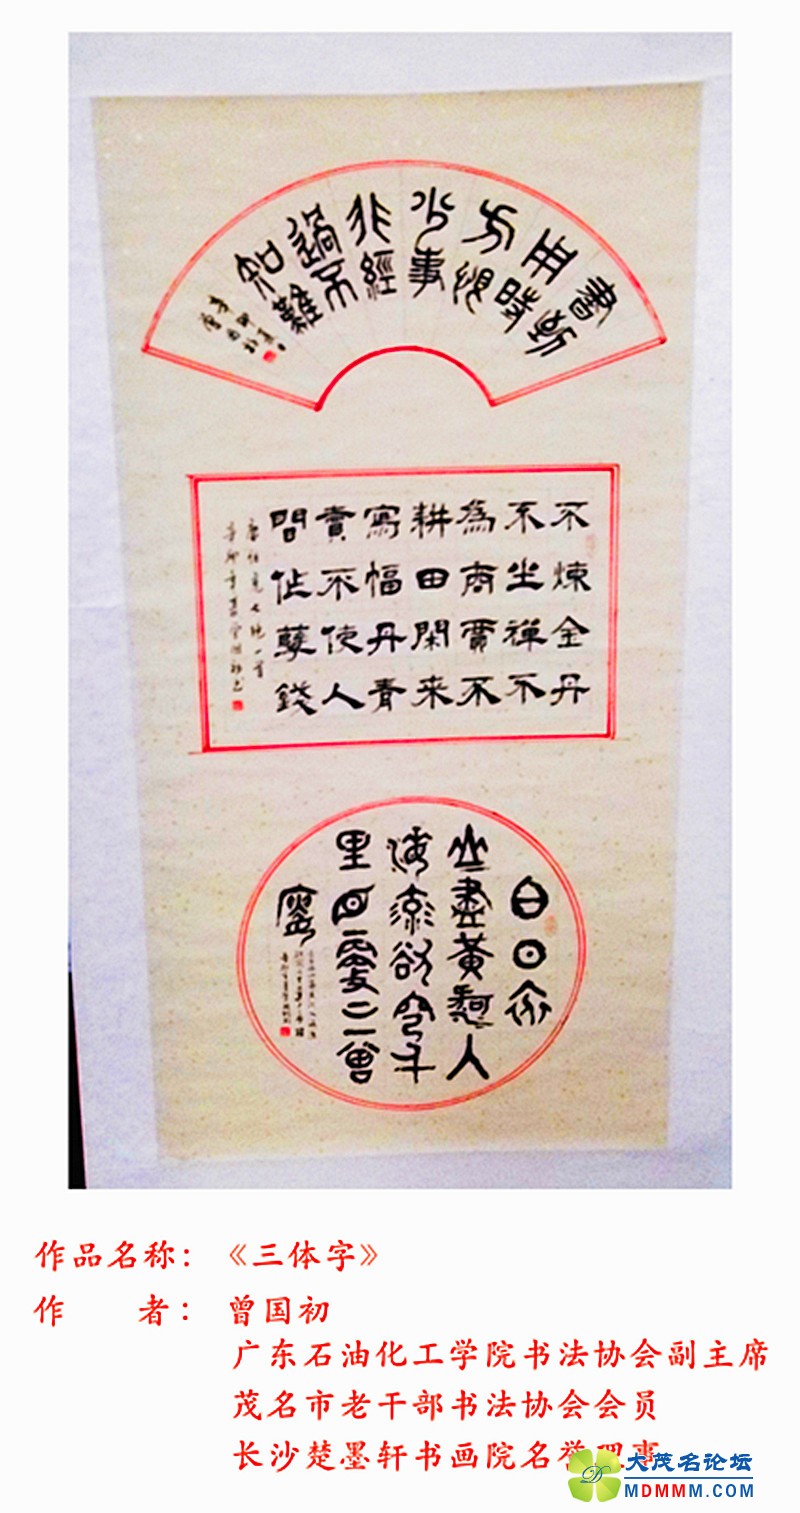 書到
用時
方恨
少事
非經
過不
知難
不煉金丹
不坐禪不
為商賈不
耕田閑来
寫幅丹青
賣不使人
間作孽錢
唐伯虎七绝一首
辛卯年夏曾国初书
白日依
山盡黃河入
海流欲窮千
里目更上一層
樓
作品名称：《三体字》
作者：曾国初
广东石油化工学院书法协会副主席
茂名市老干部书法协会会员
长沙楚墨轩书画院名誉理事
大茂名论坛
MDMMM.COM